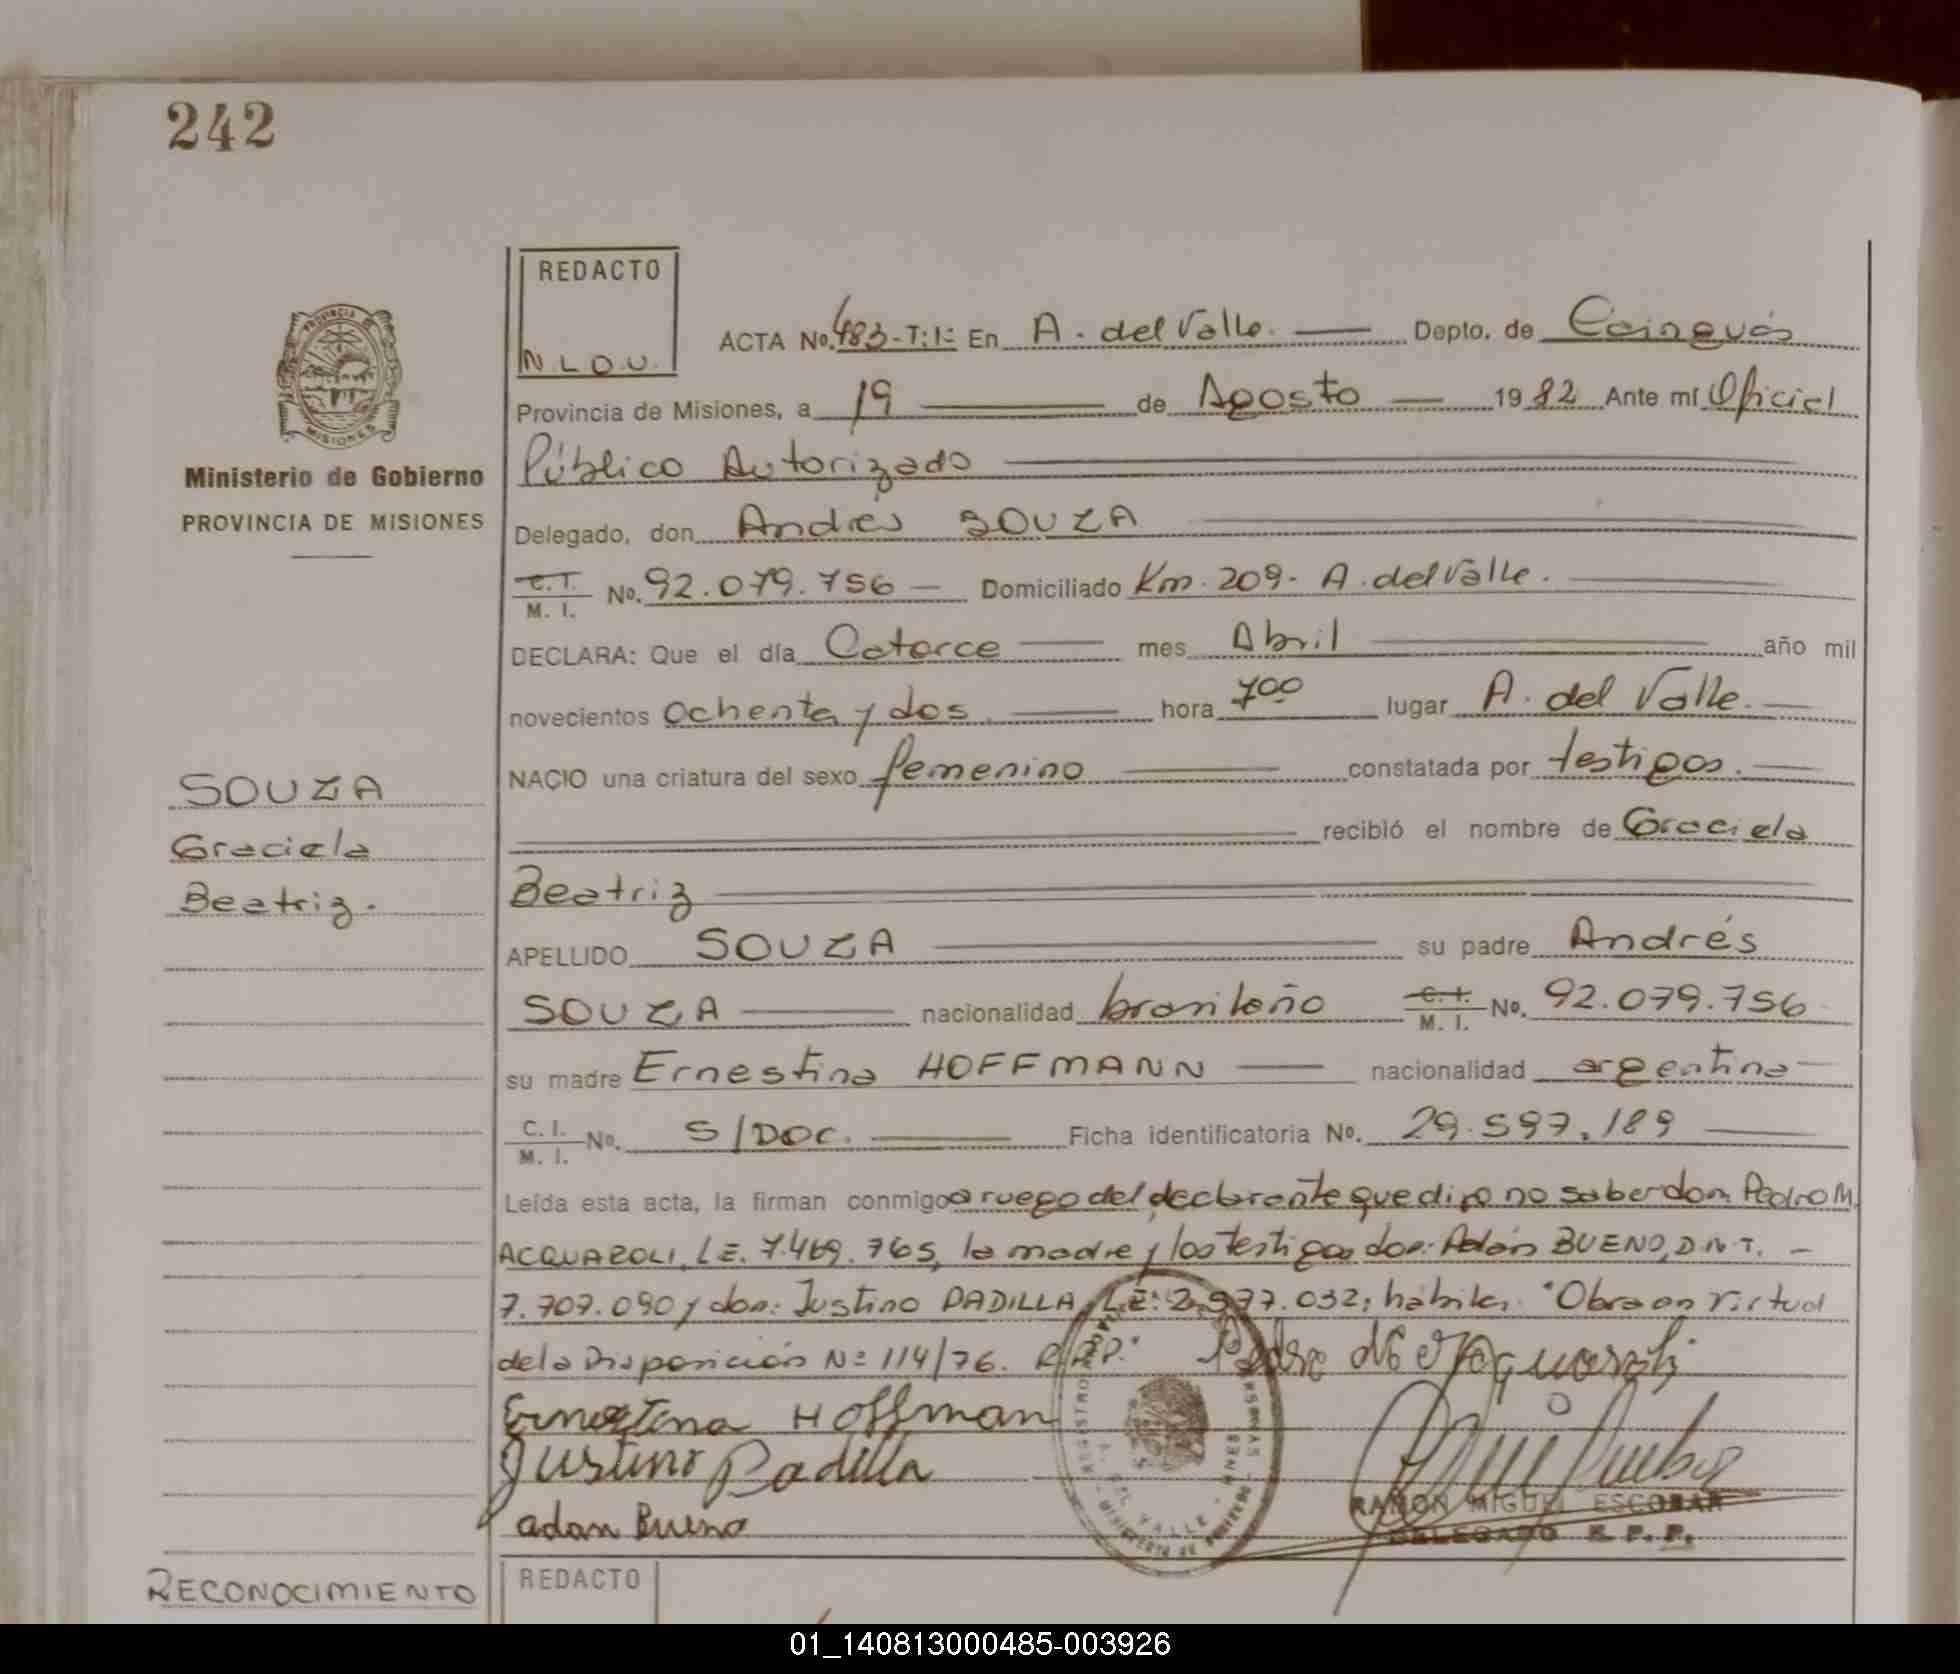 242
REDACTO
N.L.O.U.
ACTA No. 483-T:1:- En A. del Valle. Depto. de Cainguás
Provincia de Misiones, a 19 de Agosto 1982 Ante mí Oficial
Público Autorizado
Delegado, don Andrés SOUZA
C.I. M. I. No. 92.079.756 Domiciliado Km. 209- A. del Valle.
DECLARA: Que el día Catorce mes Abril año mil
novecientos ochenta y dos hora 7oo lugar A. del Valle.
NACIO una criatura del sexo femenino constatada por testigos.
recibió el nombre de Graciela
Beatriz
APELLIDO SOUZA su padre Andrés
SOUZA nacionalidad brasileño C.I. M. I. No. 92.079.756
su madre Ernestina HOFFMANN nacionalidad argentina
C. I. M. I. No. S/DOC. Ficha identificatoria No. 29.597.189
Leída esta acta, la firman conmigo a ruego del declarante que dijo no saber don Pedro M.
ACQUAROLI, LE. 7.469.765, la madre y los testigos don: Adán BUENO, D.N.I. -
7.707.090 y don: Justino PADILLA, L.E: 2.977.032; hábiles. "Obra en virtud
de la Disposición Nº 114/76. R.P.P."
Ernestina Hoffman
Justino Padilla
adan Bueno
RAMON MIGUEL ESCOBAR
DELEGADO R. P. P.
PROVINCIA DE
MISIONES
Ministerio de Gobierno
PROVINCIA DE MISIONES
SOUZA
Graciela
Beatriz.
RECONOCIMIENTO
REDACTO
01_140813000485-003926